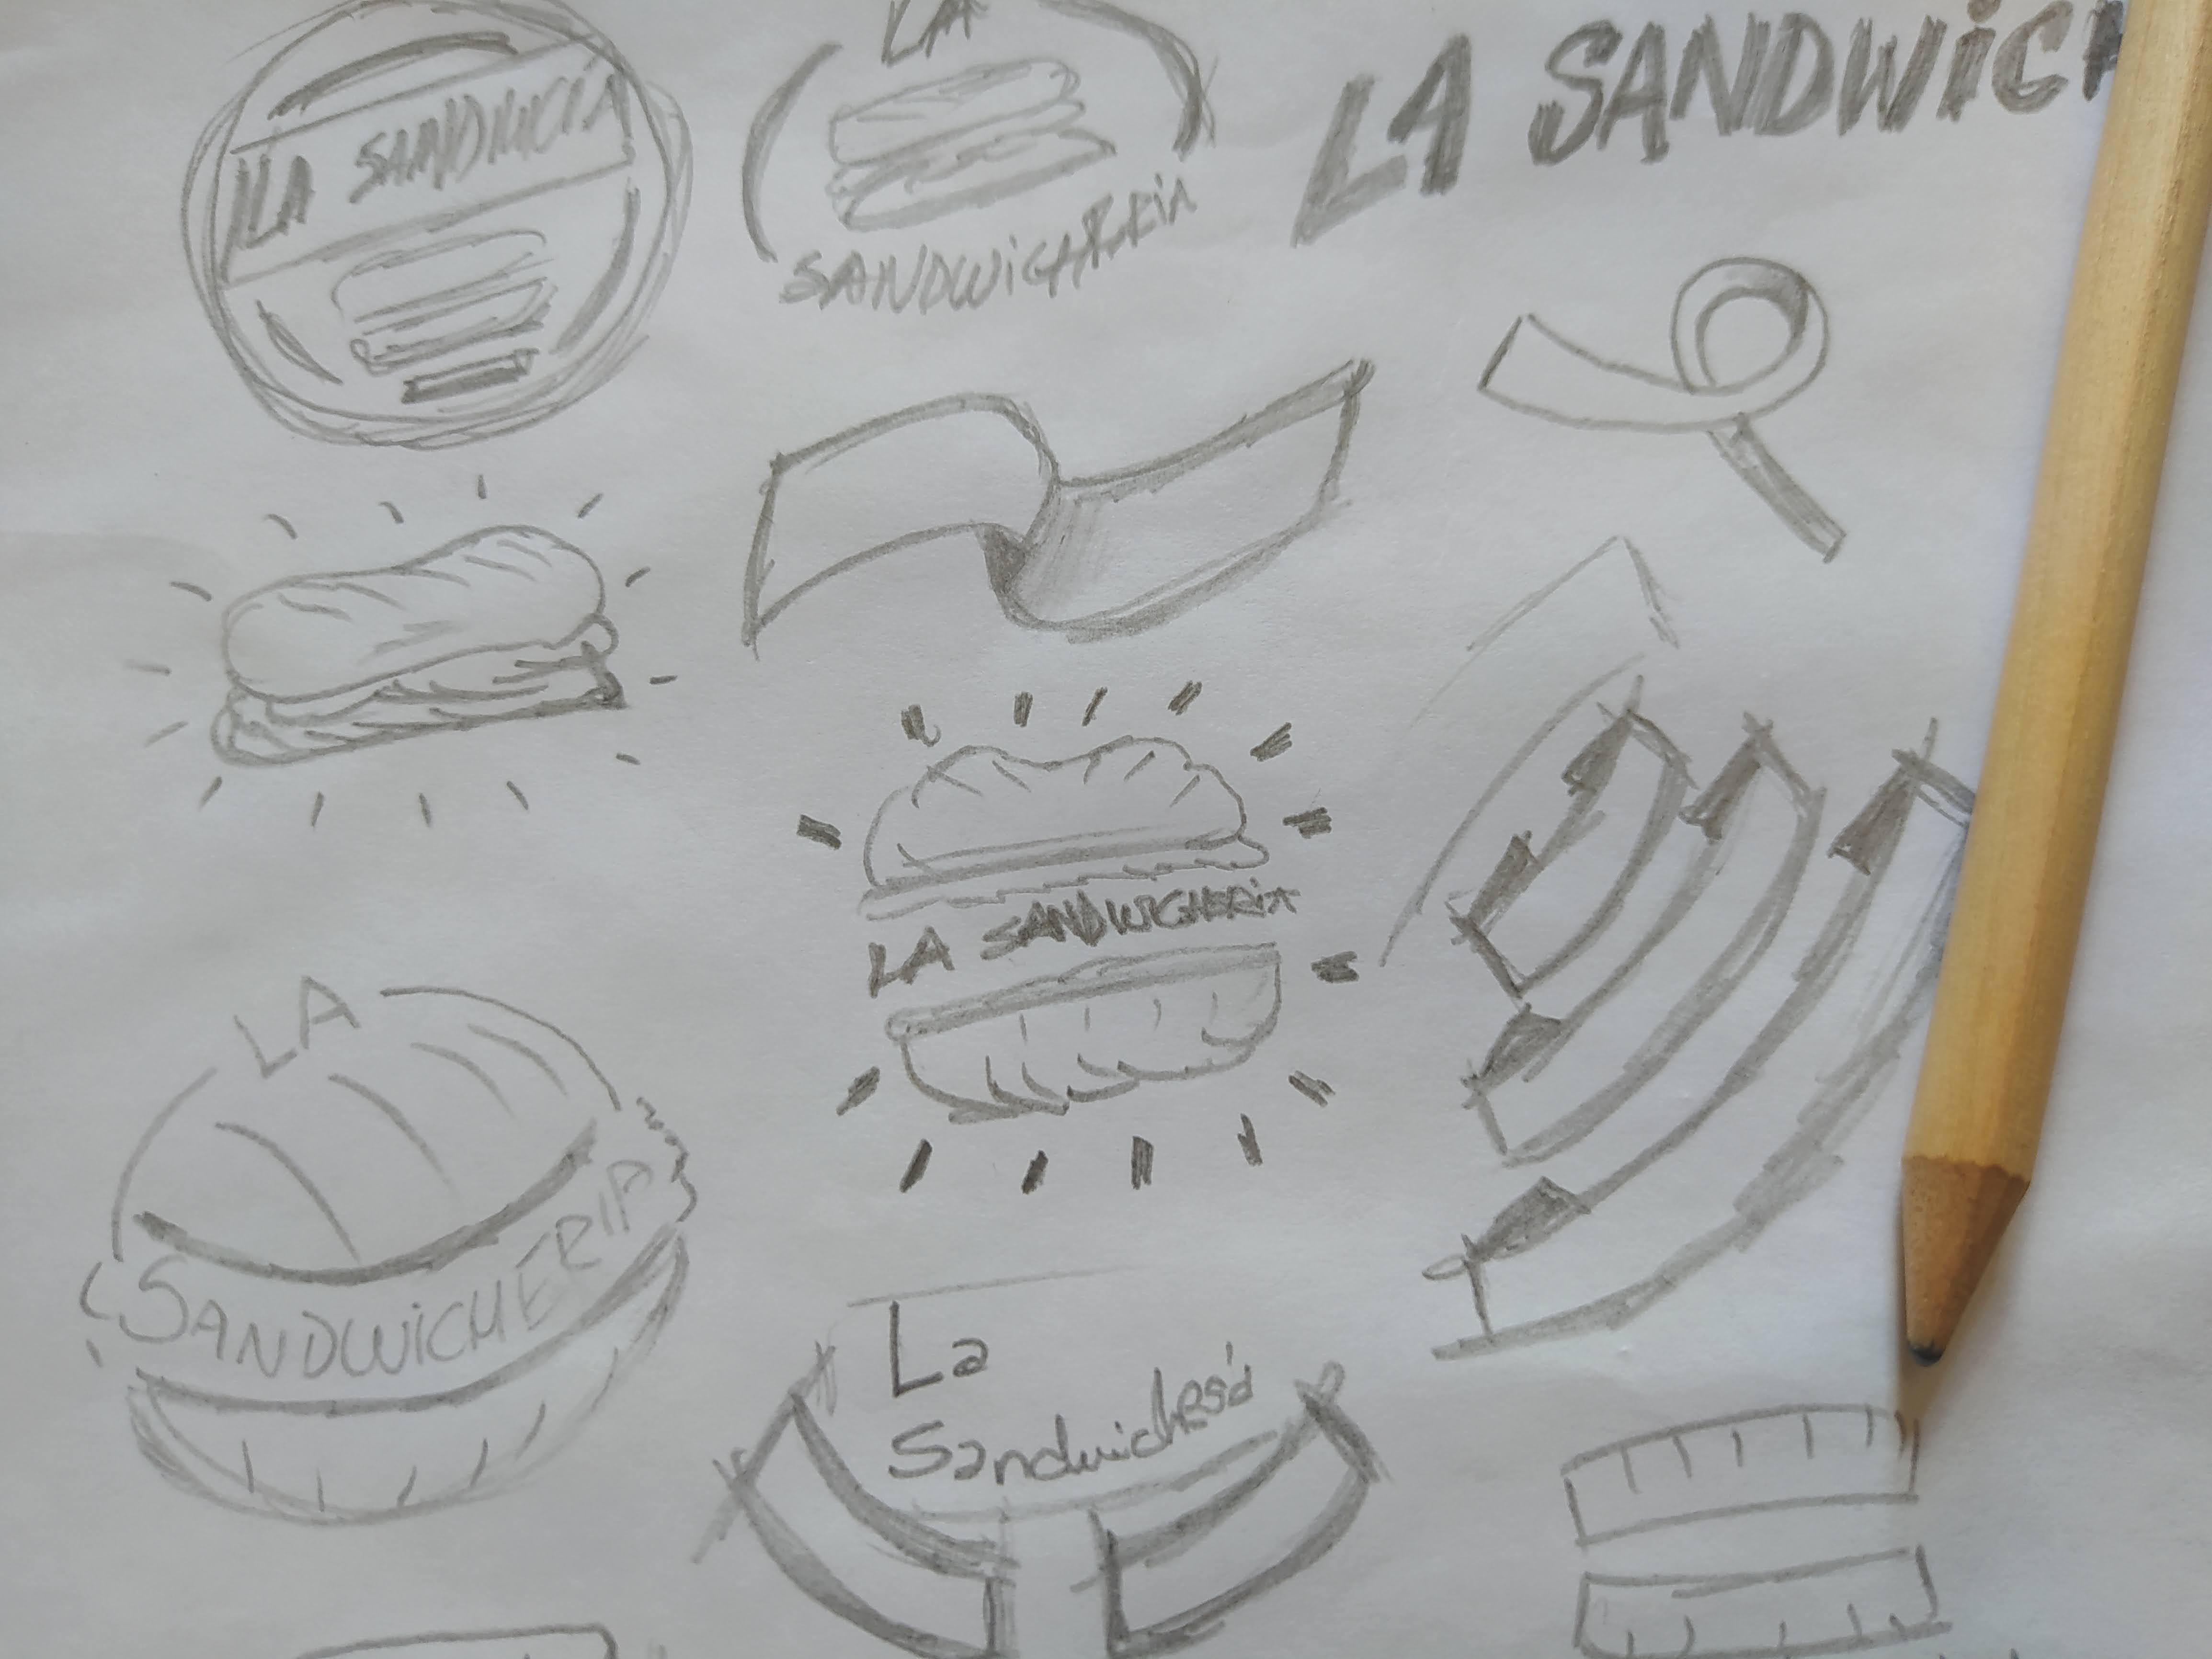 LA SANDWICIA
LA
SANDWiCHERiA
LA SANDWiCH
LA SANDWiCHERiA
LA
SANDWiCHERIA
La
Sandwiches'a